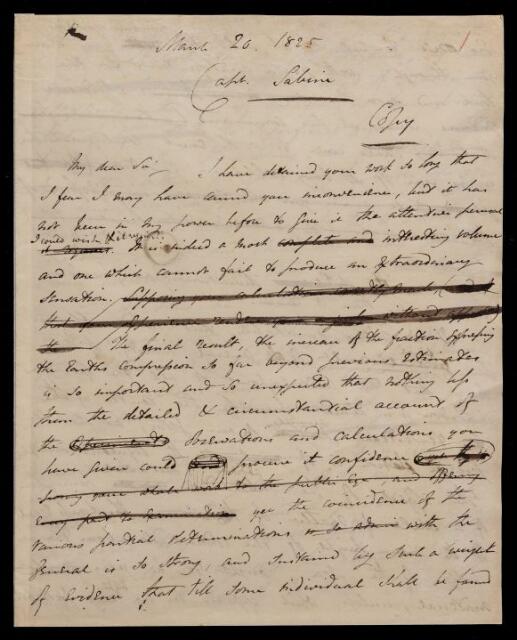 March 26 1825
1
Capt. Sabine
Copy
My dear Sir, I have detained your work so long that
I fear I may have caused you inconvenience, but it has
not been in my power before to give it the attentive perusal
I could wish & it requires
it required. It is indeed a most complete and interesting volume
and one which cannot fail to produce an extraordinary
sensation. Supposing your calculations
that your experience without
the The final result, the increase of the fraction expressing
the Earths compression so far beyond previous estimates
is so important and so unexpected that nothing less
than the detailed & circumstantial account of
the Experiments observations and calculations you
have given could procure it confidence
your whole work to the public eye, and offering
every part to examination yet the coincidence of the
various partial determinations with the
general is so strong, and sustained by such a weight
of evidence that till some individual shall be found